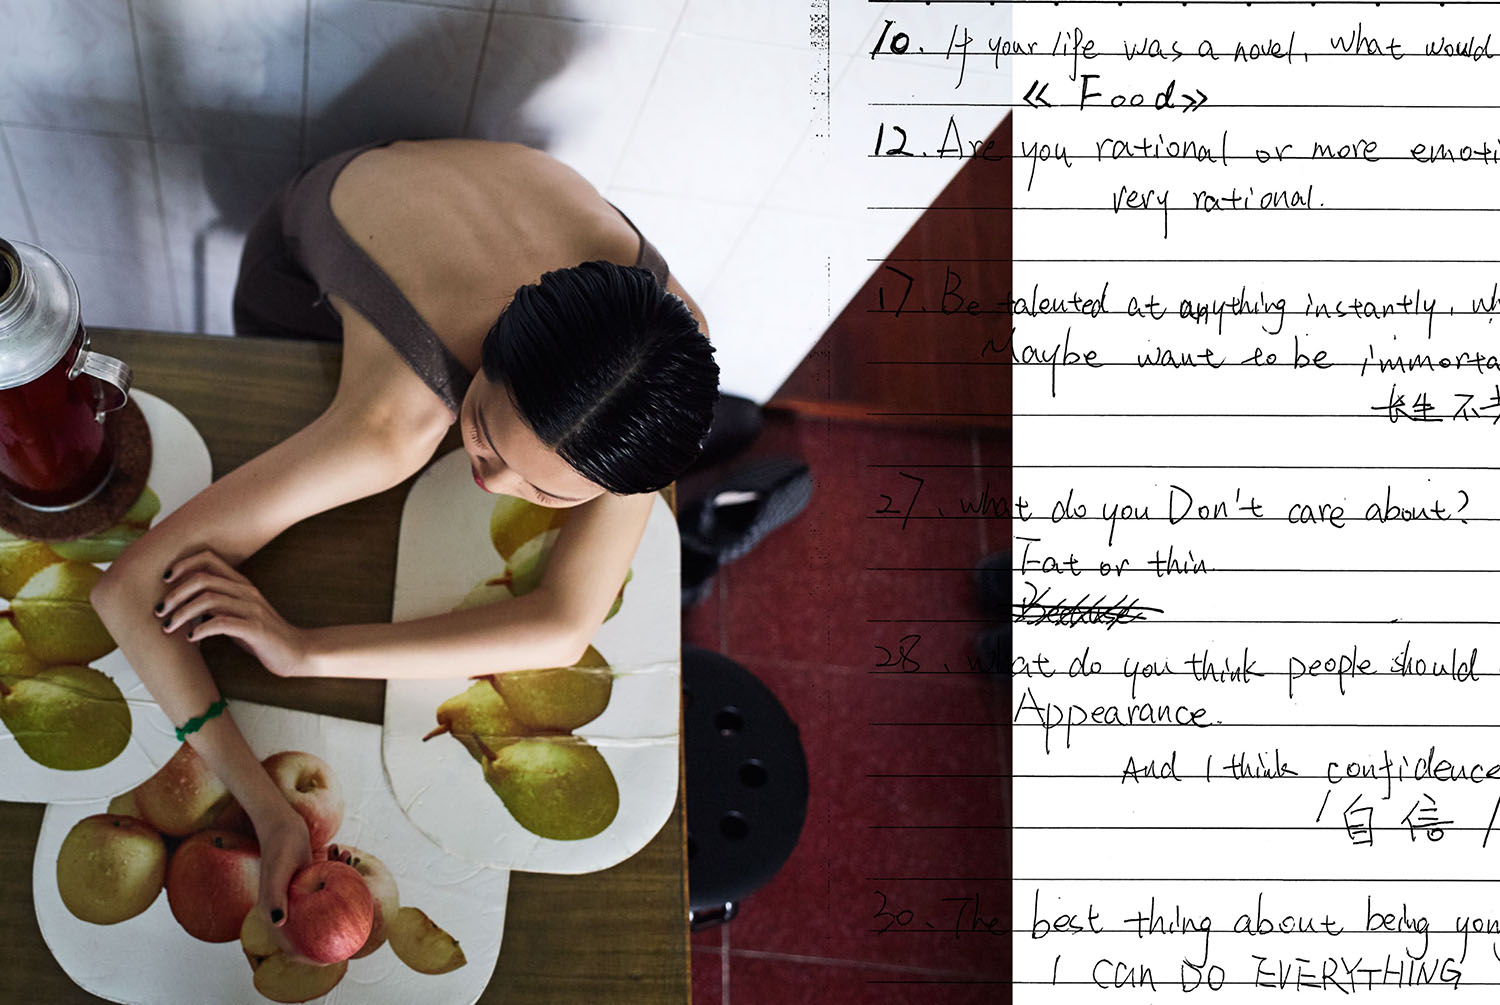 10. If your life was a novel, what would
《Food》
12. Are you rational or more emoti
very rational.
17. Be talented at anything instantly, wh
Maybe want to be immorta
长生不
27. what do you Don't care about?
Fat or thin
28. what do you think people should
Appearance.
And I think confidence
/自信/
30. The best thing about being yo
I can DO EVERYTHING